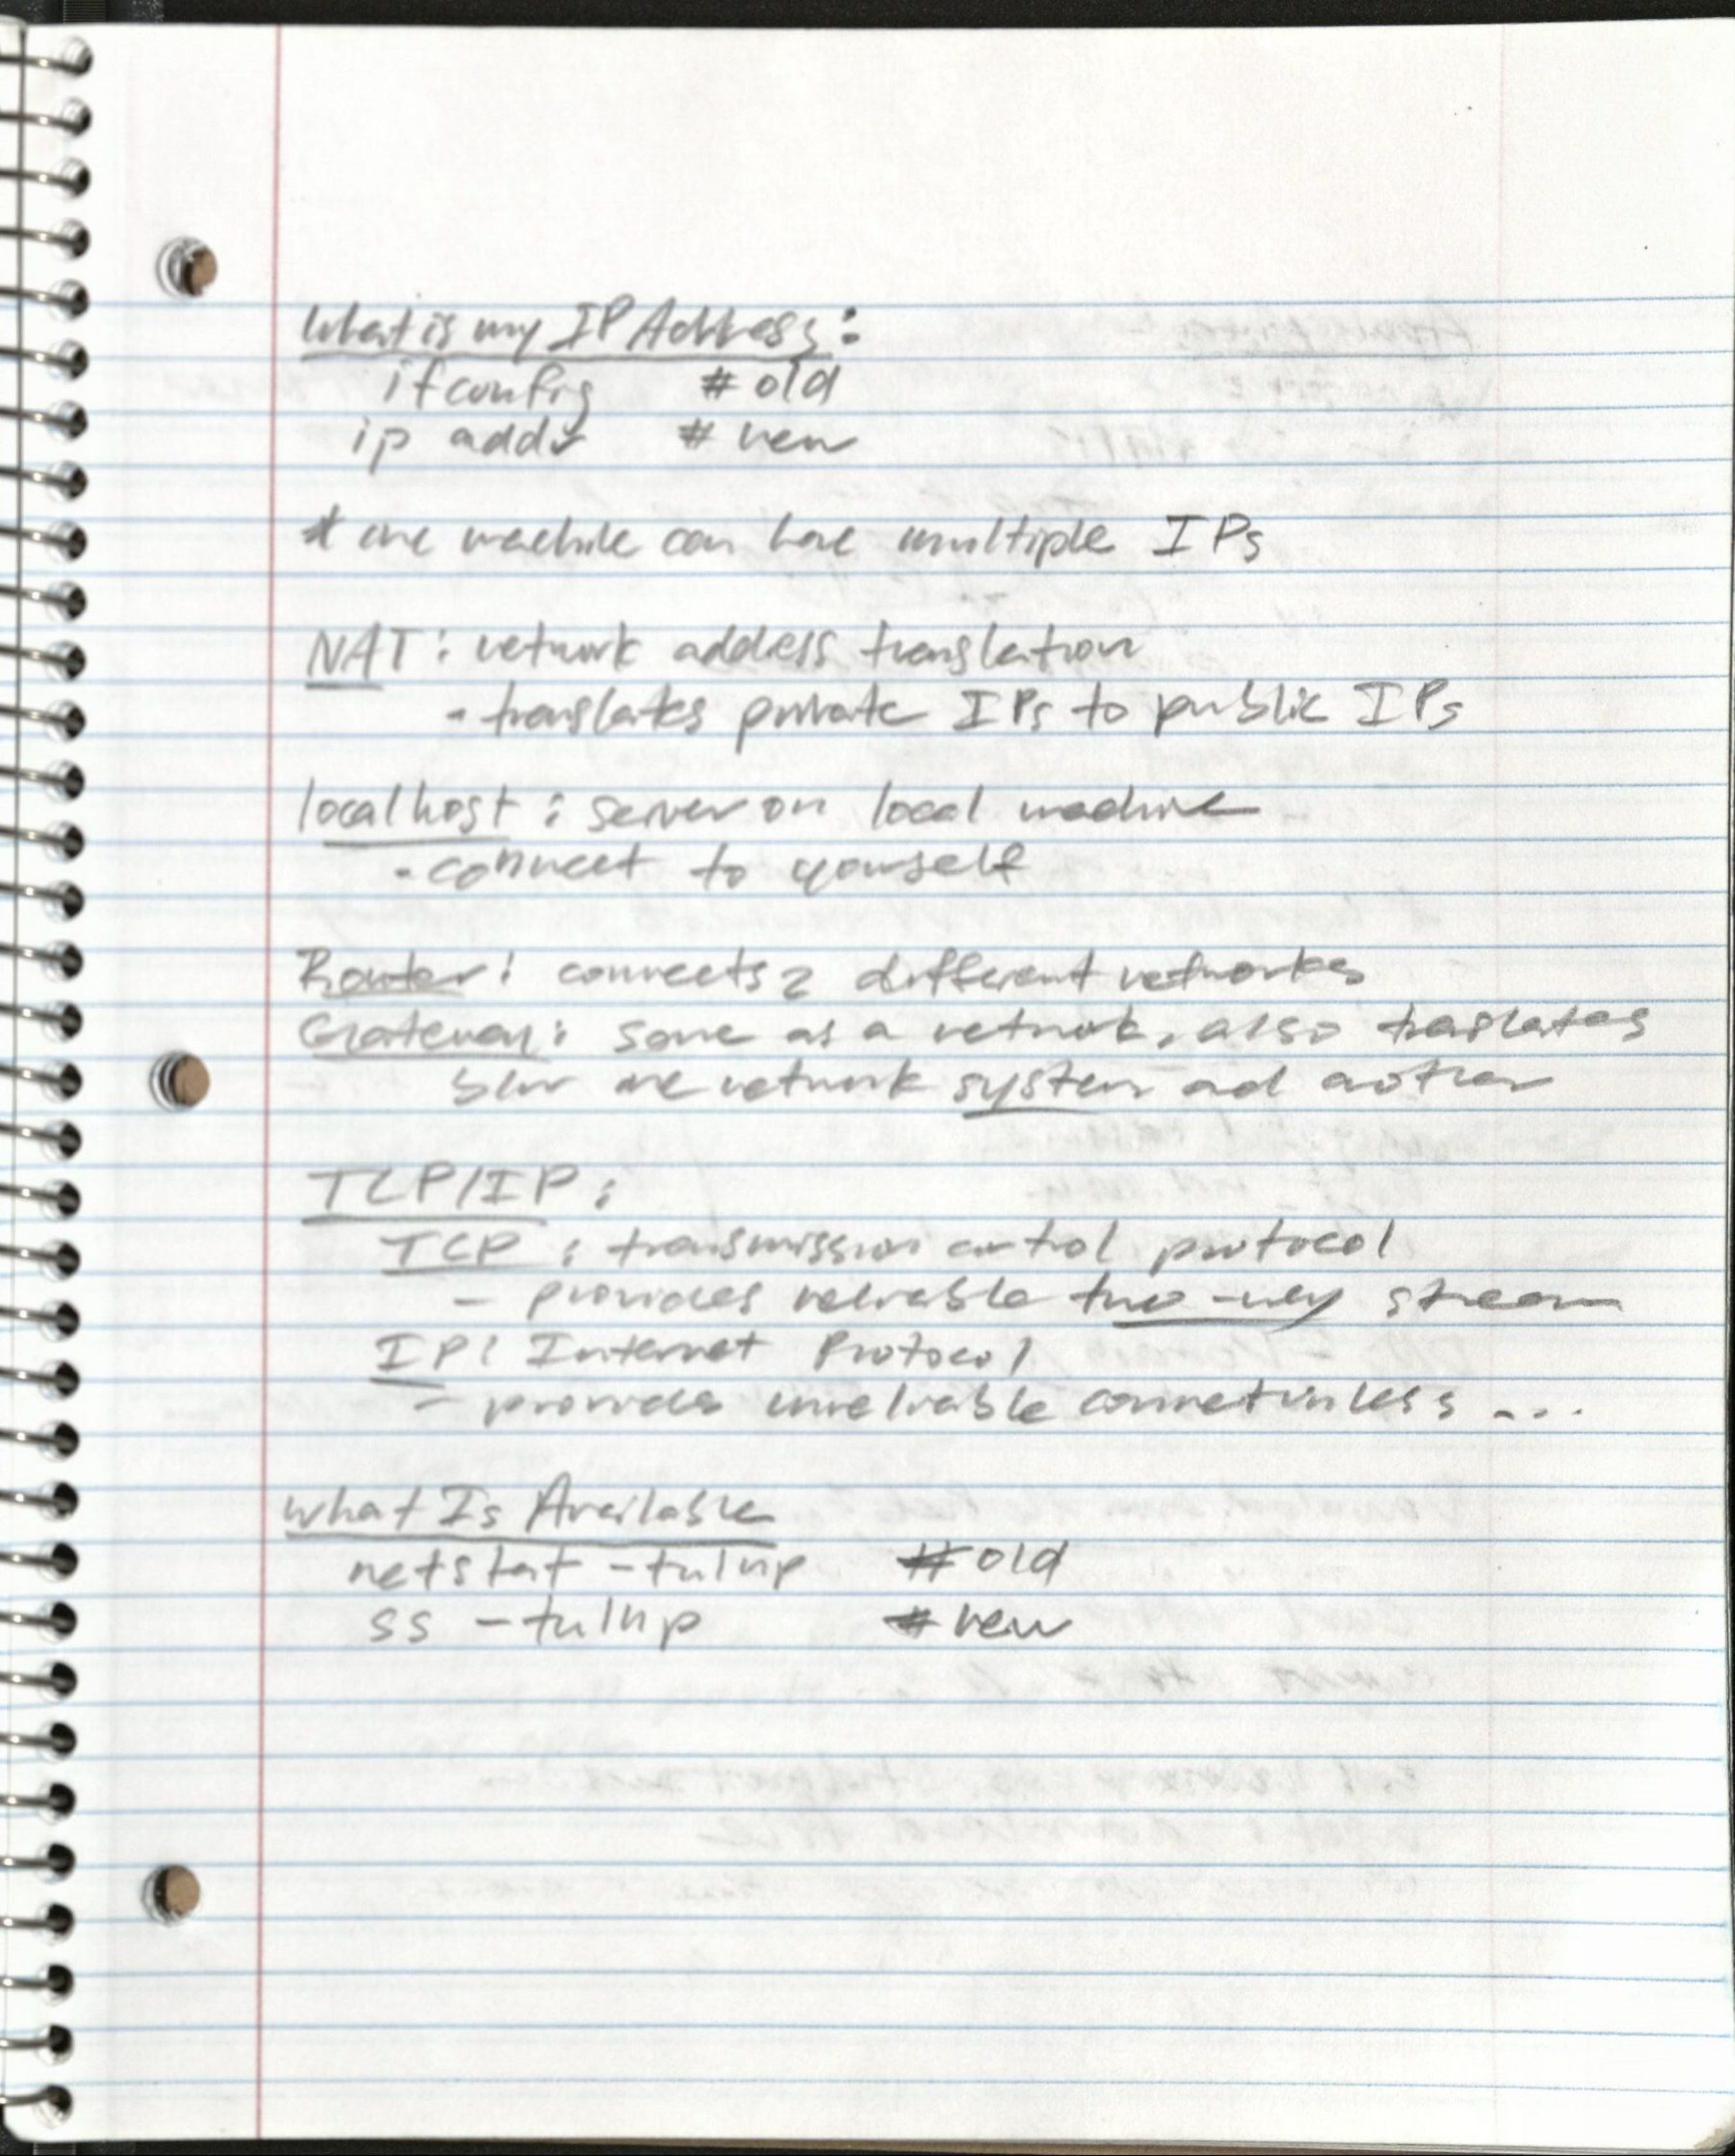 What is my IP Address:
ifconfig # old
ip addr # new
* one machine can have multiple IPs
NAT: network address translation
- translates private IPs to public IPs
localhost: server on local machine
- connect to yourself
Router: connects 2 different networks
Gateway: same as a network, also traslates
btw one network system and another
TCP/IP:
TCP: transmission control protocol
- provides reliable two-way stream
IP: Internet Protocol
- provides unreliable connectionless ...
What Is Available
netstat -tulnp # old
ss -tulnp # new